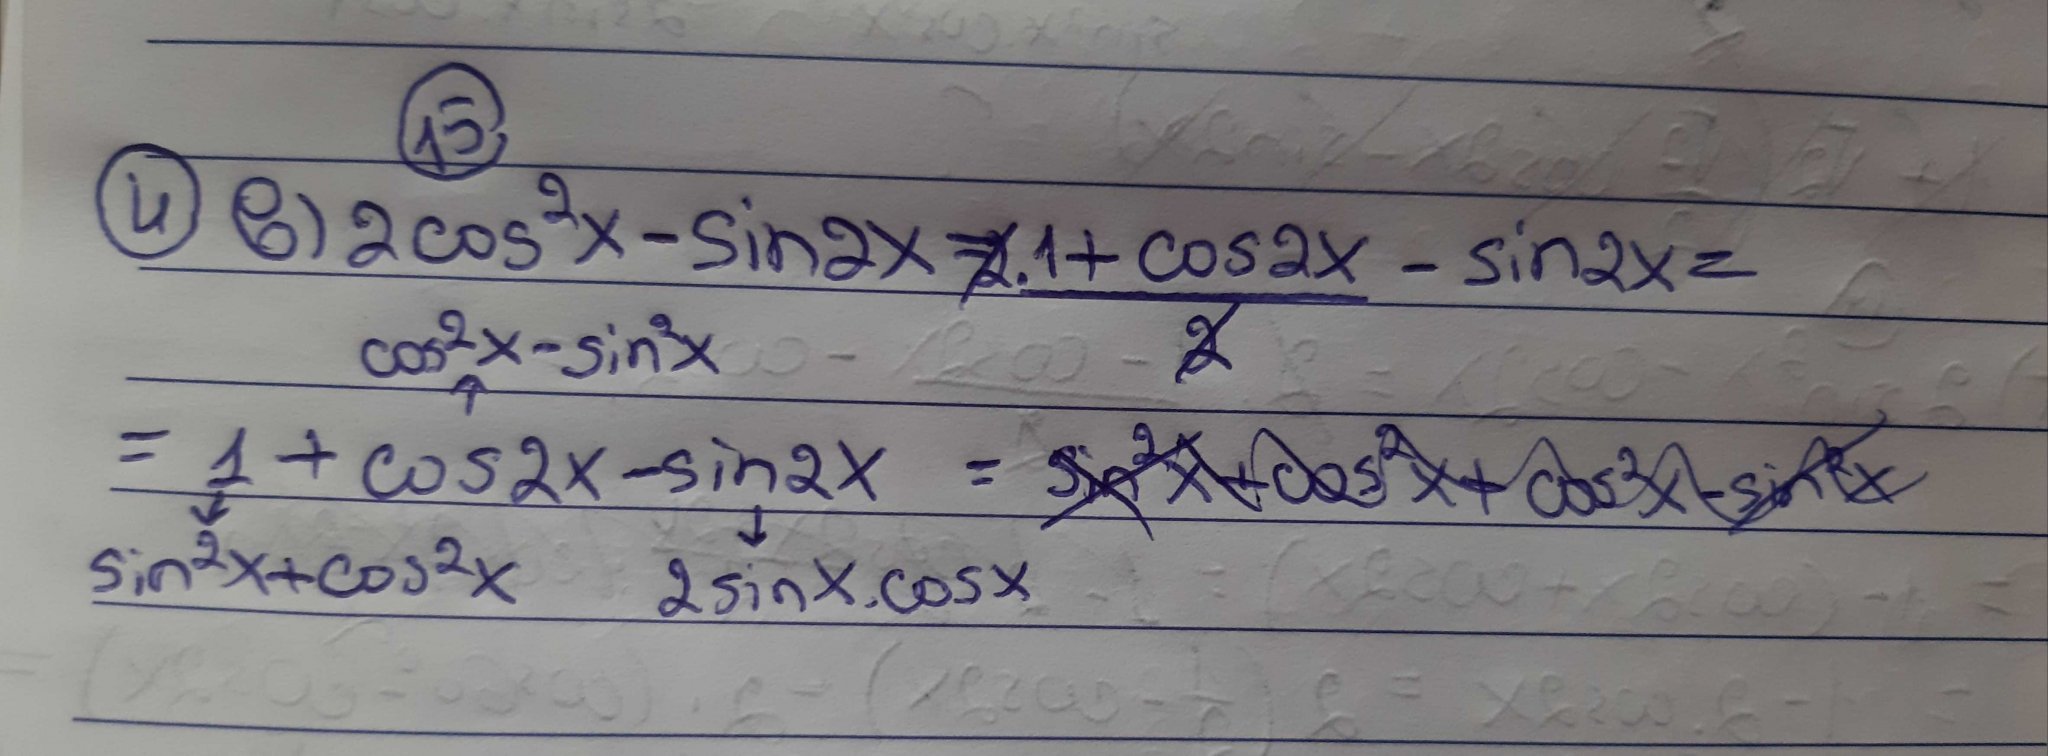 15
4 в) 2cos²x - sin2x = 2.1+cos2x - sin2x =
2
cos²x - sin²x
= 1 + cos2x - sin2x = sin²x + cos²x + cos²x - sin²x
sin²x + cos²x 2sinx.cosx